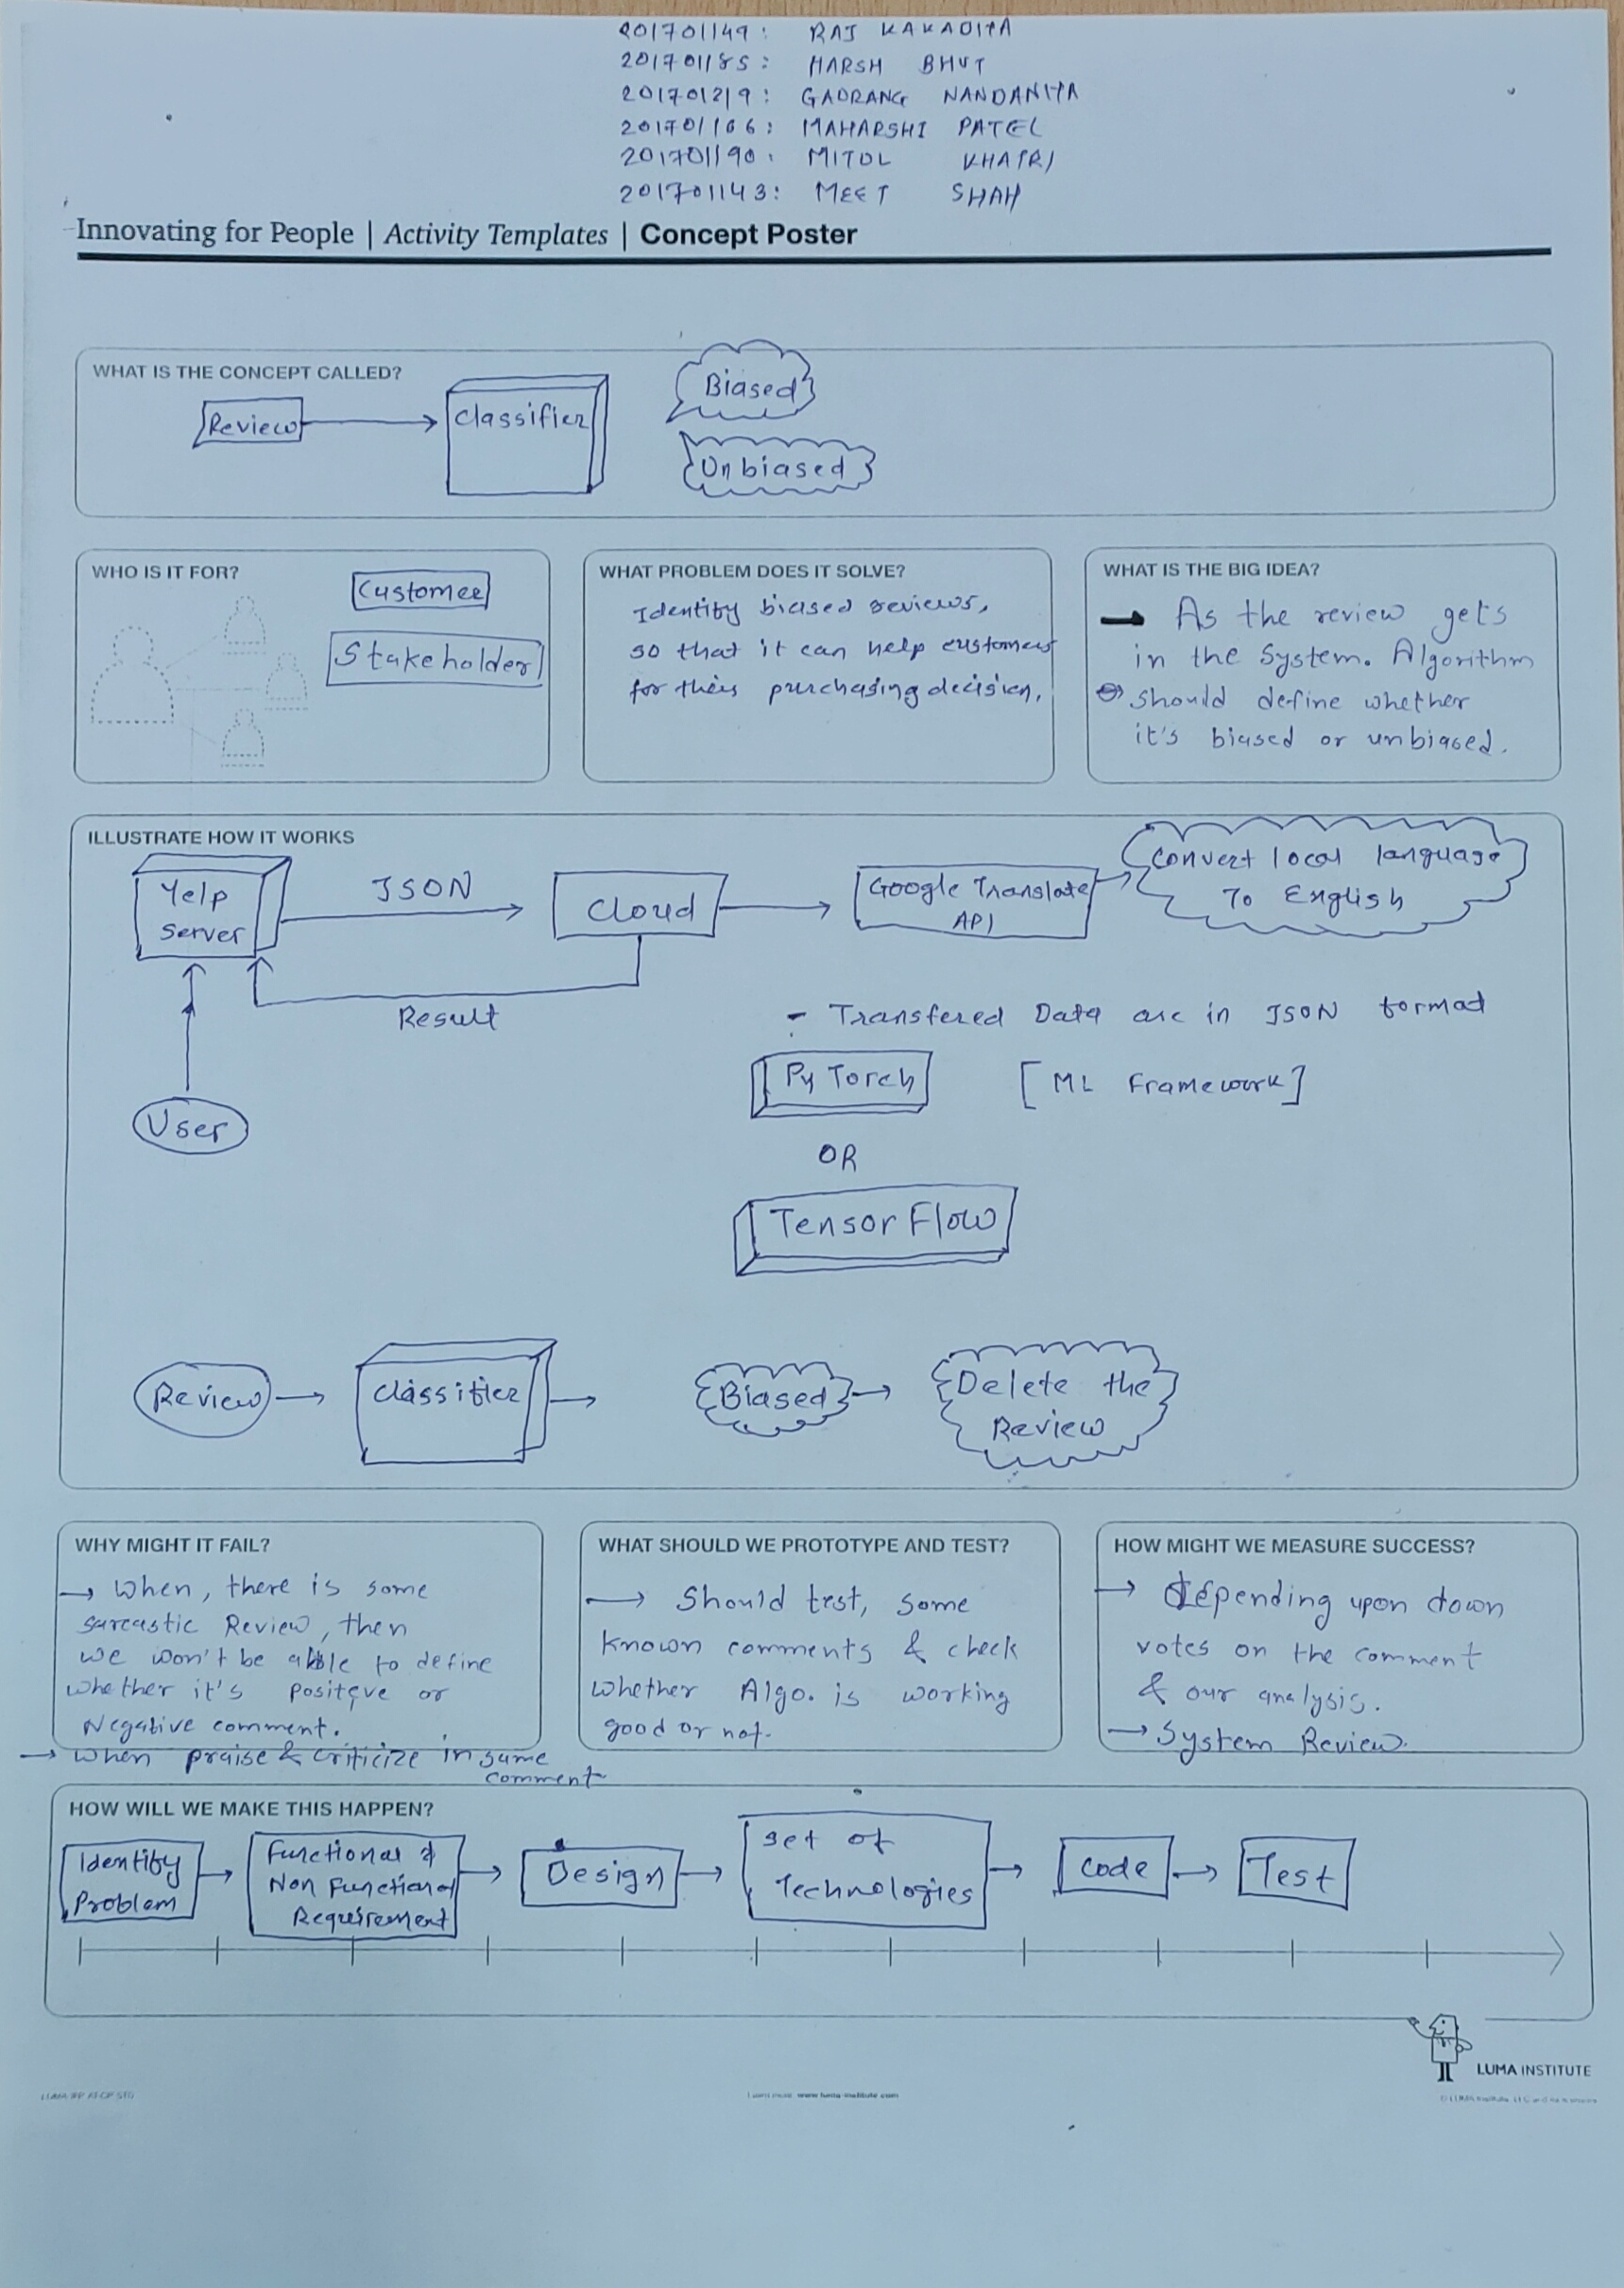 201701149: RAJ KAKADIYA
201701185: HARSH BHUT
201701219: GAURANG NANDANIYA
201701166: MAHARSHI PATEL
201701190: MITUL KHATRI
201701143: MEET SHAH
Innovating for People | Activity Templates | Concept Poster
WHAT IS THE CONCEPT CALLED?
Review
Classifier
Biased
Unbiased
WHO IS IT FOR?
Customer
Stakeholder
WHAT PROBLEM DOES IT SOLVE?
Identify biased reviews,
so that it can help customers
for their purchasing decision.
WHAT IS THE BIG IDEA?
→ As the review gets
in the System. Algorithm
should define whether
it's biased or unbiased.
ILLUSTRATE HOW IT WORKS
Yelp
Server
JSON
Cloud
Google Translate
API
Convert local language
To English
Result
- Transfered Data are in JSON format
User
PyTorch
[ML Framework]
OR
TensorFlow
Review
Classifier
Biased
Delete the
Review
WHY MIGHT IT FAIL?
→ When, there is some
sarcastic Review, then
we won't be able to define
whether it's positive or
Negative comment.
→ when praise & criticize in same
comment
WHAT SHOULD WE PROTOTYPE AND TEST?
→ Should test, some
known comments & check
whether Algo. is working
good or not.
HOW MIGHT WE MEASURE SUCCESS?
→ depending upon down
votes on the comment
& our analysis.
→ System Review.
HOW WILL WE MAKE THIS HAPPEN?
Identify
Problem
Functional &
Non Functional
Requirement
Design
Set of
Technologies
Code
Test
LUMA INSTITUTE
www.luma-institute.com